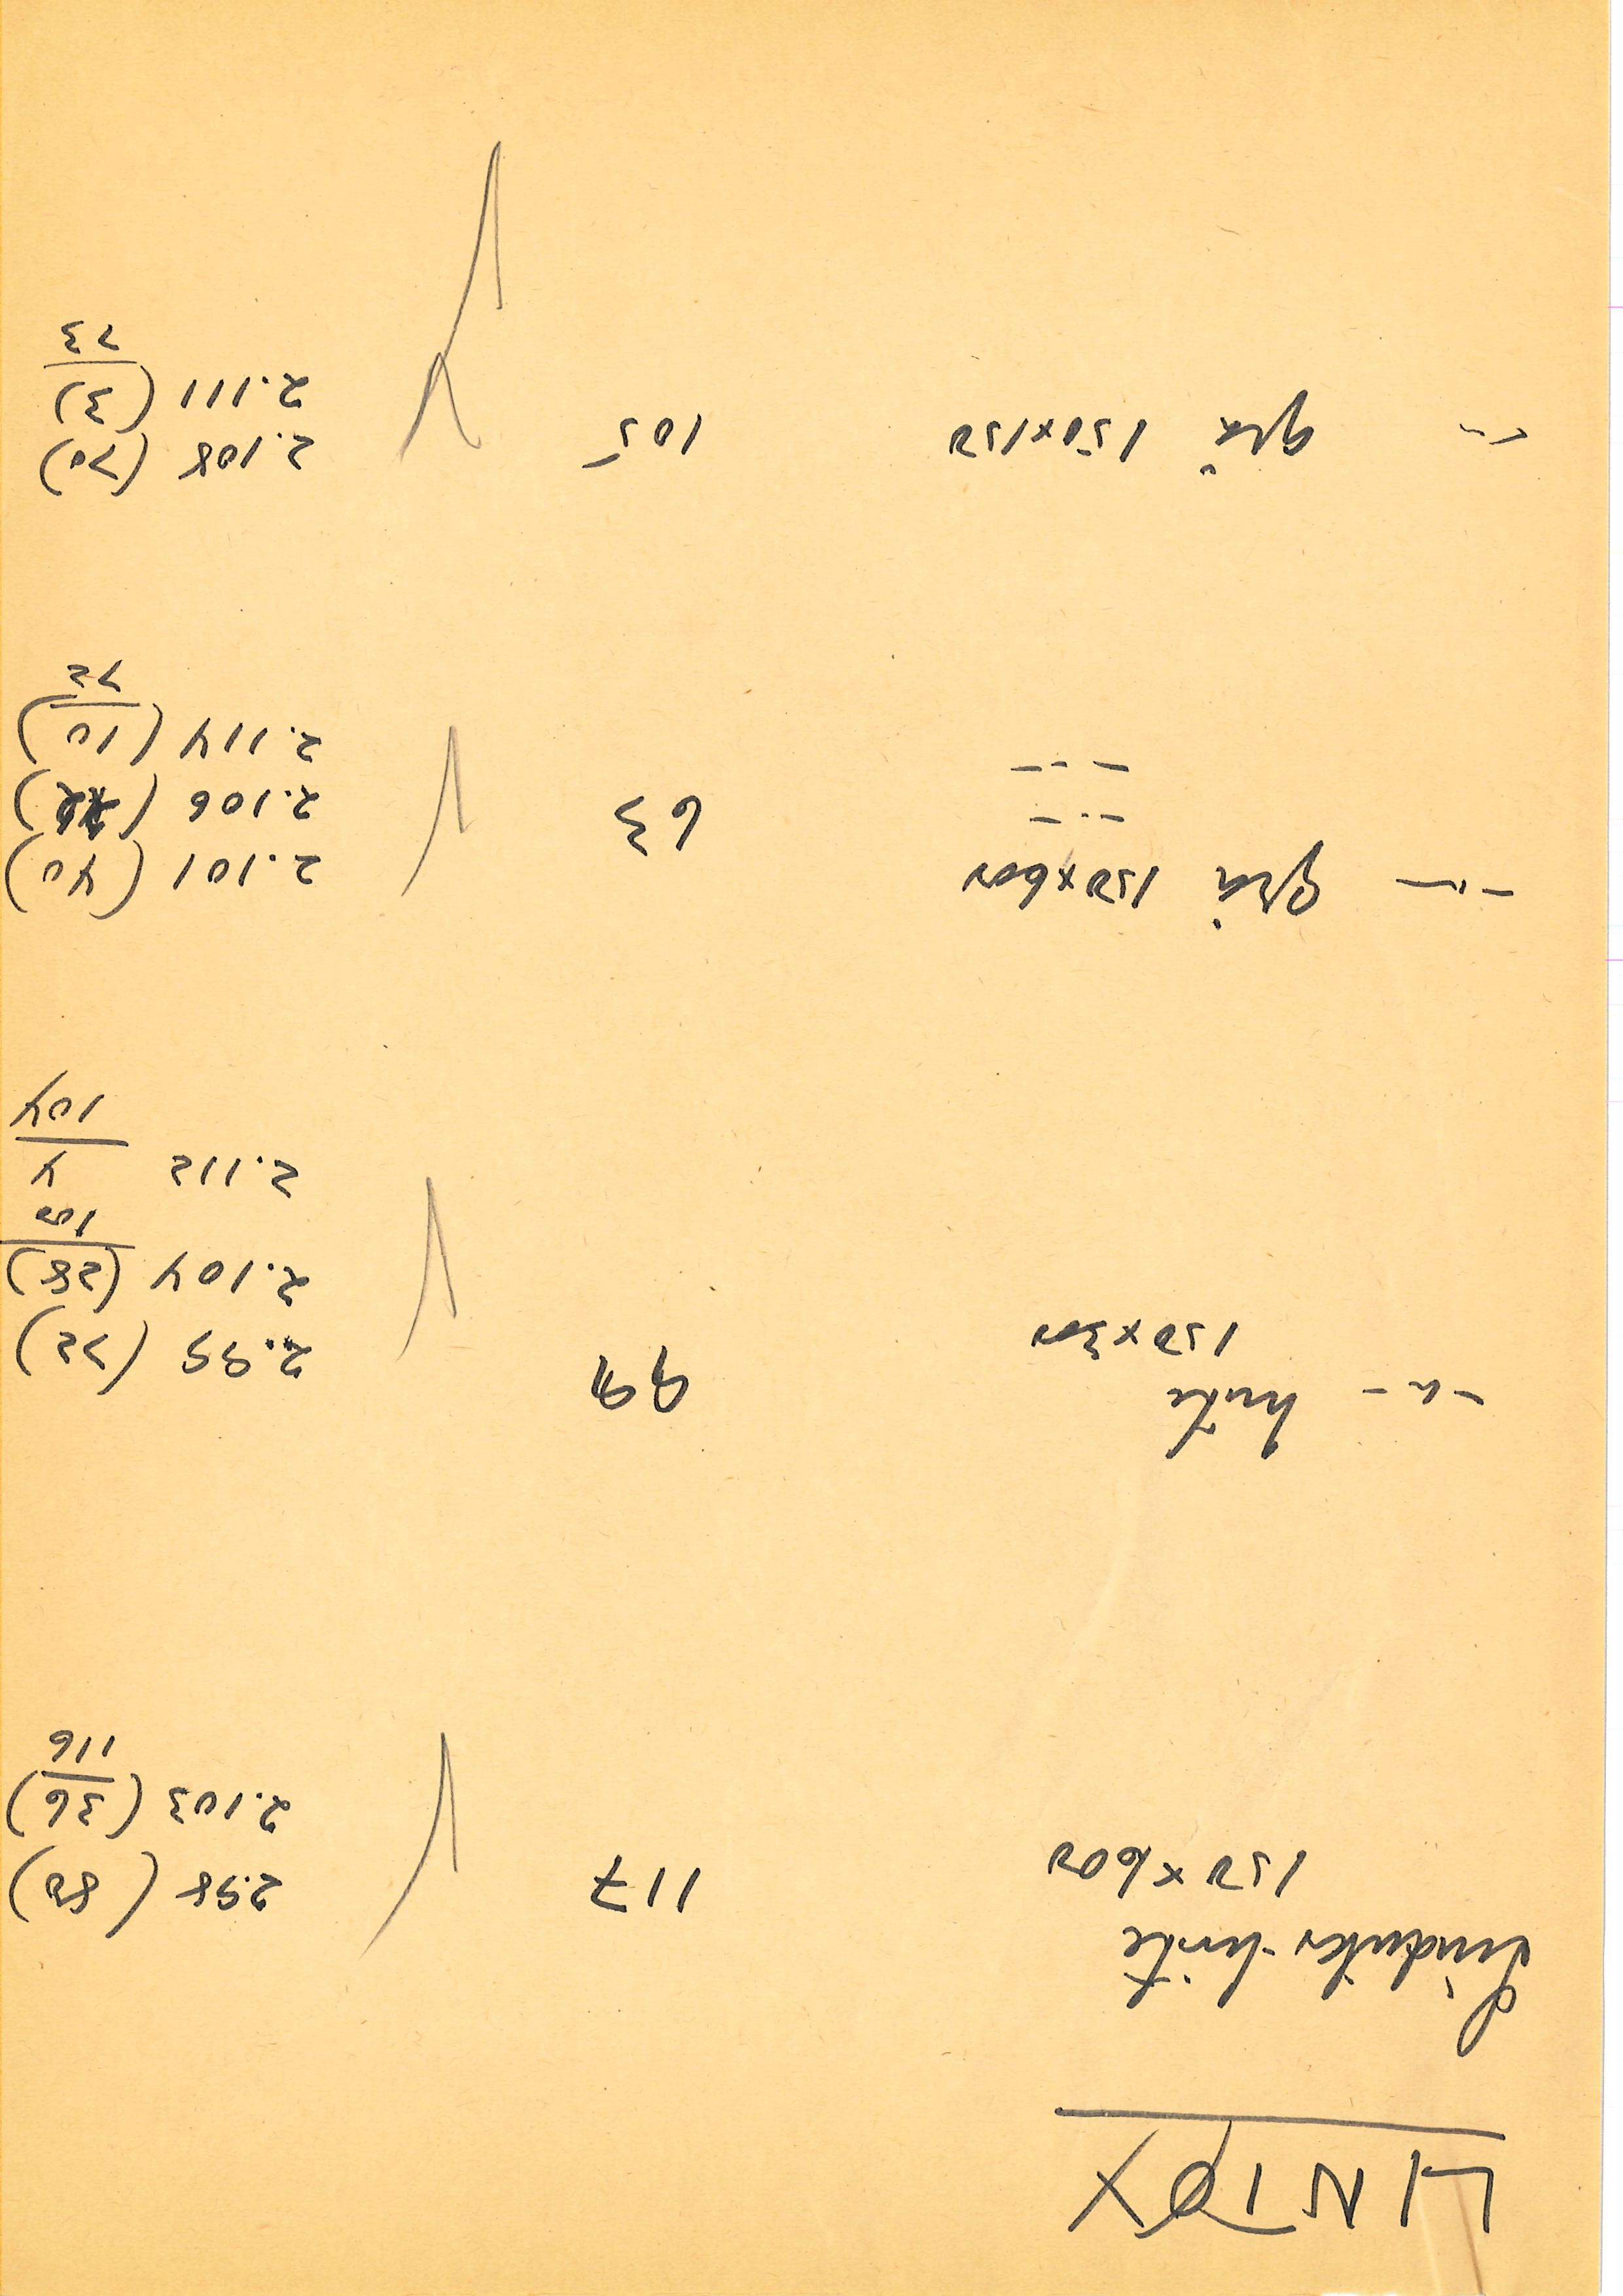 LINDX
Linduks-hvite
150 x 600 117 2.98 (80)
2.103 (36)
116
-"- hvite
150 x 300 2.99 (72)
2.104 (28)
100
2.112 4
104
-"- grå 150x600 63 2.101 (40)
-"- 2.106 (22)
-"- 2.114 (10)
72
-"- grå 150x150 105 2.108 (70)
2.111 (3)
73